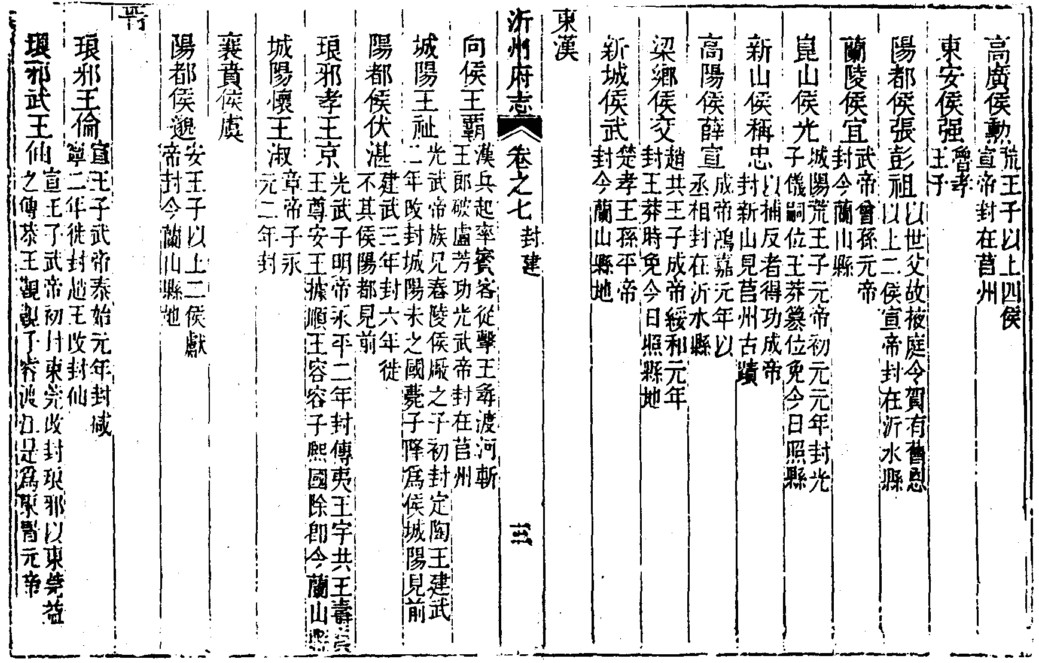 高廣侯勳荒王子以上四侯宣帝封在莒州
東安侯强魯孝王子
陽都侯張彭祖以世父故掖庭令賀有舊恩以上二侯宣帝封在沂水縣
蘭陵侯宜武帝曾孫元帝封今蘭山縣
崑山侯光城陽荒王子元帝初元元年封光子儀嗣位王莽篡位免今日照縣
新山侯稱忠以捕反者得功成帝封新山見莒州古蹟
高陽侯薛宣成帝鴻嘉元年以丞相封在沂水縣
梁鄉侯交趙共王子成帝綏和元年封王莽時免今日照縣地
新城侯武楚孝王孫平帝封今蘭山縣地
東漢
沂州府志 卷之七 封建 三
向侯王霸漢兵起率賓客從擊王尋渡河斬王郎破盧芳功光武帝封在莒州
城陽王祉光武帝族兄舂陵侯敞之子初封定陶王建武二年改封城陽未之國薨子降為侯城陽見前
陽都侯伏湛建武三年封六年徙不其侯陽都見前
琅邪孝王京光武子明帝永平二年封傳夷王宇共王壽王尊安王據順王容容子熙國除即今蘭山縣
城陽懷王淑章帝子永元二年封
襄賁侯虞
陽都侯邈安王子以上二侯獻帝封今蘭山縣地
晋
琅邪王倫宣王子武帝泰始元年封咸寧二年徙封趙王改封仙
琅邪武王仙宣王子武帝初封東莞改封琅邪以東莞益之傳恭王覲覲子睿渡江是為東晋元帝